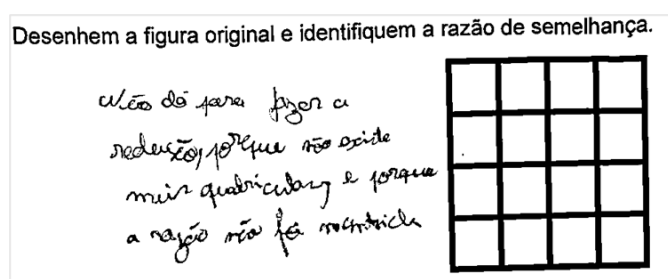 Desenhem a figura original e identifiquem a razão de semelhança.
Não dá para fazer a
redução, porque não existe
meia quadricula e porque
a razão não foi